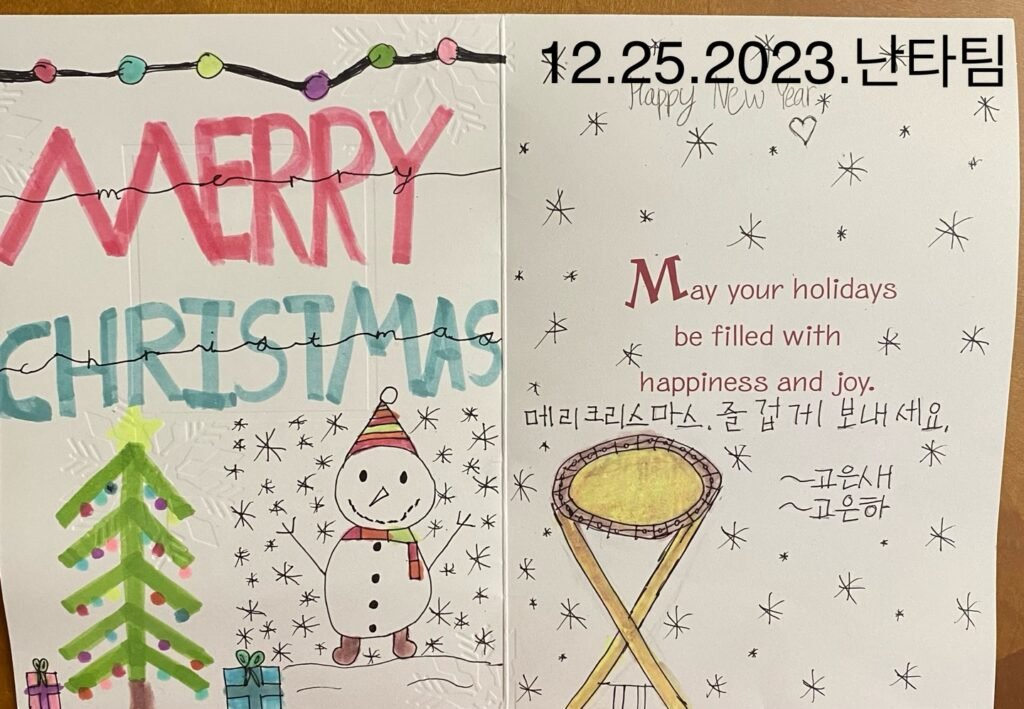 MERRY
merry
CHRISTMAS
christmas
12.25.2023.난타팀
Happy New Year
May your holidays
be filled with
happiness and joy.
메리크리스마스. 즐겁게 보내세요.
~고은새
~고은하